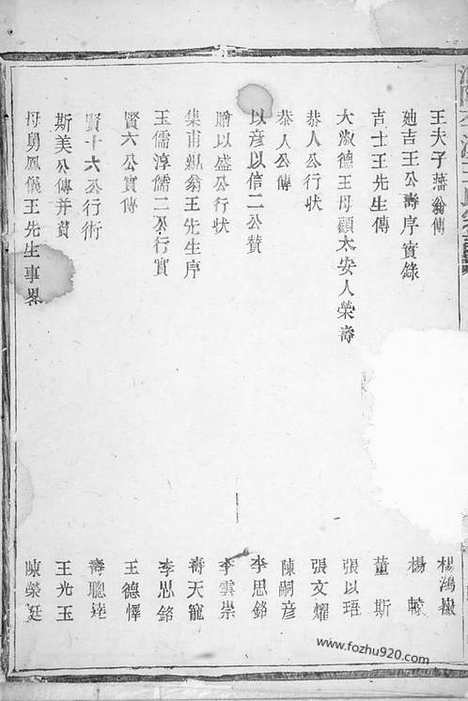 王夫子藩翁傳 楊鴻嶽
廸吉王公壽序實錄 楊
吉士王先生傳 董斯
大淑德王母顧太安人榮壽 張以珸
恭人公行狀 張文耀
恭人公傳 陳嗣彦
以彦以信二公贊 李思銘
贈以盛公行狀 李雲崇
集甫飄翁王先生序 壽天寵
玉儒淳儒二公行實 李思銘
賢六公實傳 王德懌
賢十六公行術 壽聰
斯美公傳并贊 王光玉
母舅鳳儀王先生事畧 陳榮廷
www.fozhu920.com